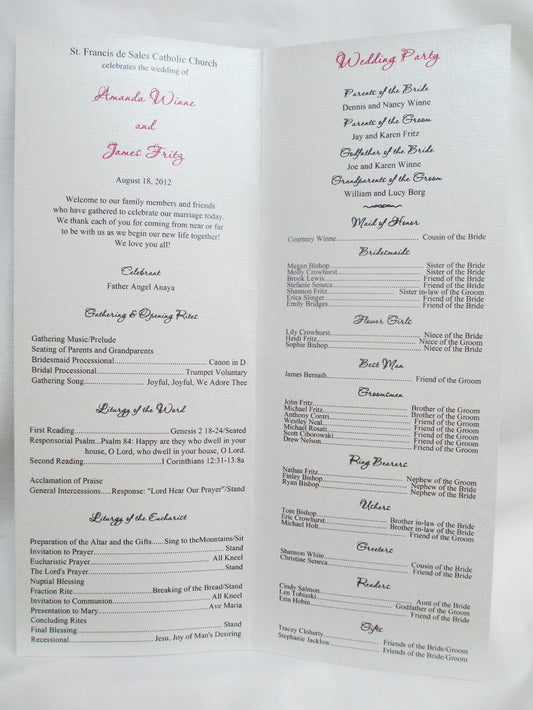 St. Francis de Sales Catholic Church
celebrates the wedding of
Amanda Winne
and
James Fritz
August 18, 2012
Welcome to our family members and friends
who have gathered to celebrate our marriage today.
We thank each of you for coming from near or far
to be with us as we begin our new life together!
We love you all!
Celebrant
Father Angel Anaya
Gathering & Opening Rites
Gathering Music/Prelude
Seating of Parents and Grandparents
Bridesmaid Processional..........Canon in D
Bridal Processional..........Trumpet Voluntary
Gathering Song..........Joyful, Joyful, We Adore Thee
Liturgy of the Word
First Reading..........Genesis 2 18-24/Seated
Responsorial Psalm...Psalm 84: Happy are they who dwell in your
house, O Lord, who dwell in your house, O Lord.
Second Reading..........I Corinthians 12:31-13:8a
Acclamation of Praise
General Intercessions.....Response: "Lord Hear Our Prayer"/Stand
Liturgy of the Eucharist
Preparation of the Altar and the Gifts......Sing to theMountains/Sit
Invitation to Prayer..........Stand
Eucharistic Prayer..........All Kneel
The Lord's Prayer..........Stand
Nuptial Blessing
Fraction Rite..........Breaking of the Bread/Stand
Invitation to Communion..........All Kneel
Presentation to Mary..........Ave Maria
Concluding Rites
Final Blessing..........Stand
Recessional..........Jesu, Joy of Man's Desiring
Wedding Party
Parents of the Bride
Dennis and Nancy Winne
Parents of the Groom
Jay and Karen Fritz
Godfather of the Bride
Joe and Karen Winne
Grandparents of the Groom
William and Lucy Borg
Maid of Honor
Courtney Winne..........Cousin of the Bride
Bridesmaids
Megan Bishop..........Sister of the Bride
Molly Crowhurst..........Sister of the Bride
Brook Lewis..........Friend of the Bride
Stefanie Seneca..........Friend of the Bride
Shannon Fritz..........Sister in-law of the Groom
Erica Slinger..........Friend of the Bride
Emily Bridges..........Friend of the Bride
Flower Girls
Lily Crowhurst..........Niece of the Bride
Heidi Fritz..........Niece of the Groom
Sophie Bishop..........Niece of the Bride
Best Man
James Bernath..........Friend of the Groom
Groomsmen
John Fritz..........Brother of the Groom
Michael Fritz..........Brother of the Groom
Anthony Contri..........Friend of the Groom
Westley Neal..........Friend of the Groom
Michael Rosati..........Friend of the Groom
Scott Ciborowski..........Friend of the Groom
Drew Nelson..........Friend of the Groom
Ring Bearers
Nathan Fritz..........Nephew of the Groom
Finley Bishop..........Nephew of the Bride
Ryan Bishop..........Nephew of the Bride
Ushers
Tom Bishop..........Brother in-law of the Bride
Eric Crowhurst..........Brother in-law of the Bride
Michael Holt..........Friend of the Groom
Greeters
Shannon White..........Cousin of the Bride
Christine Seneca..........Friend of the Bride
Readers
Cindy Salmon..........Aunt of the Bride
Len Tobiaski..........Godfather of the Groom
Erin Hobin..........Friend of the Bride
Gifts
Tracey Cloherty..........Friends of the Bride/Groom
Stephanie Jacklow..........Friends of the Bride/Groom